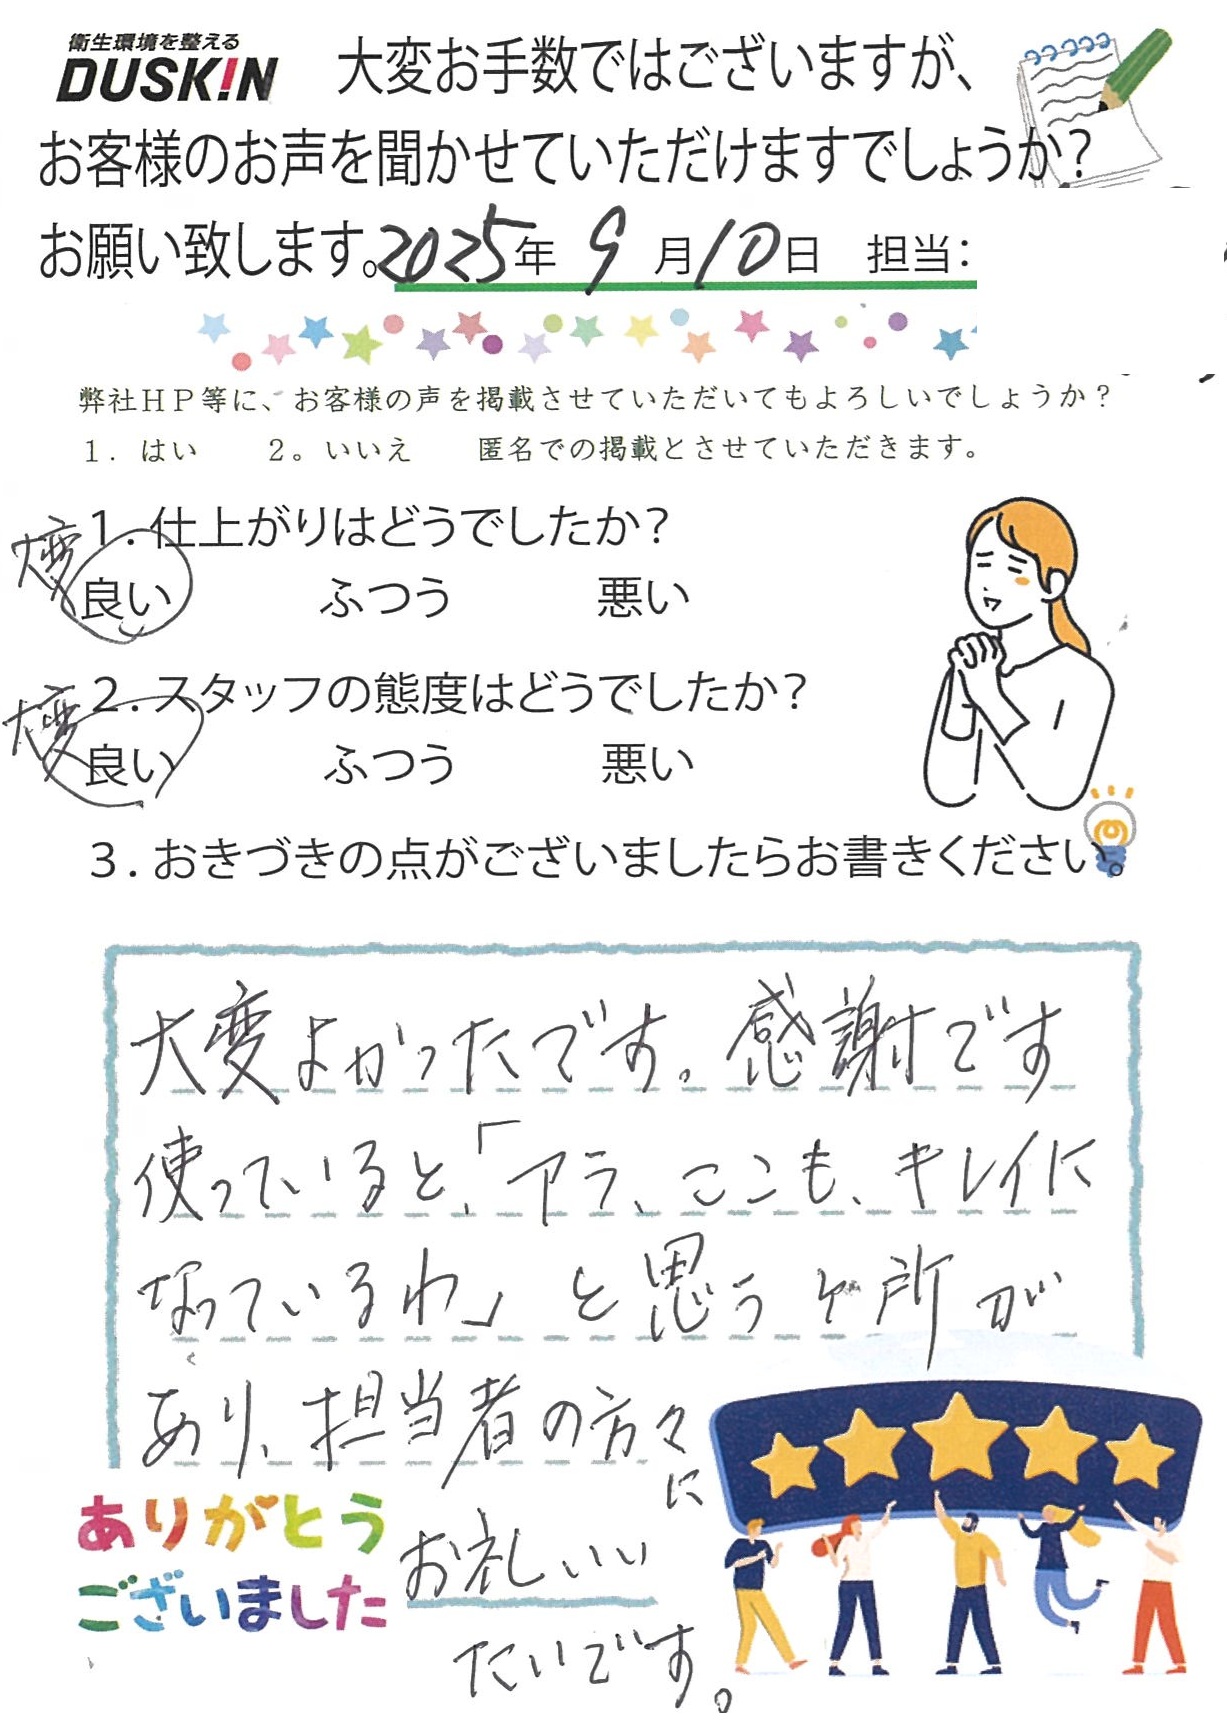 衛生環境を整える
DUSKIN
大変お手数ではございますが、
お客様のお声を聞かせていただけますでしょうか？
お願い致します。2025年 9月10日 担当：
弊社ＨＰ等に、お客様の声を掲載させていただいてもよろしいでしょうか？
１．はい　２。いいえ　匿名での掲載とさせていただきます。
１．仕上がりはどうでしたか？
大変
良い　ふつう　悪い
２．スタッフの態度はどうでしたか？
大変
良い　ふつう　悪い
３．おきづきの点がございましたらお書きください。
大変よかったです。感謝です
使っていると、「アラ、ここも、キレイに
なっているわ」と思うヶ所が
あり、担当者の方々
に
お礼いい
たいです。
ありがとう
ございました